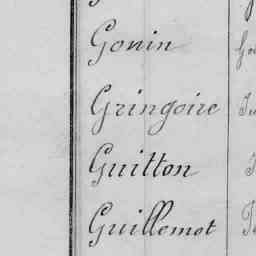 Gonin
Gringoire
Guitton
Guillemot